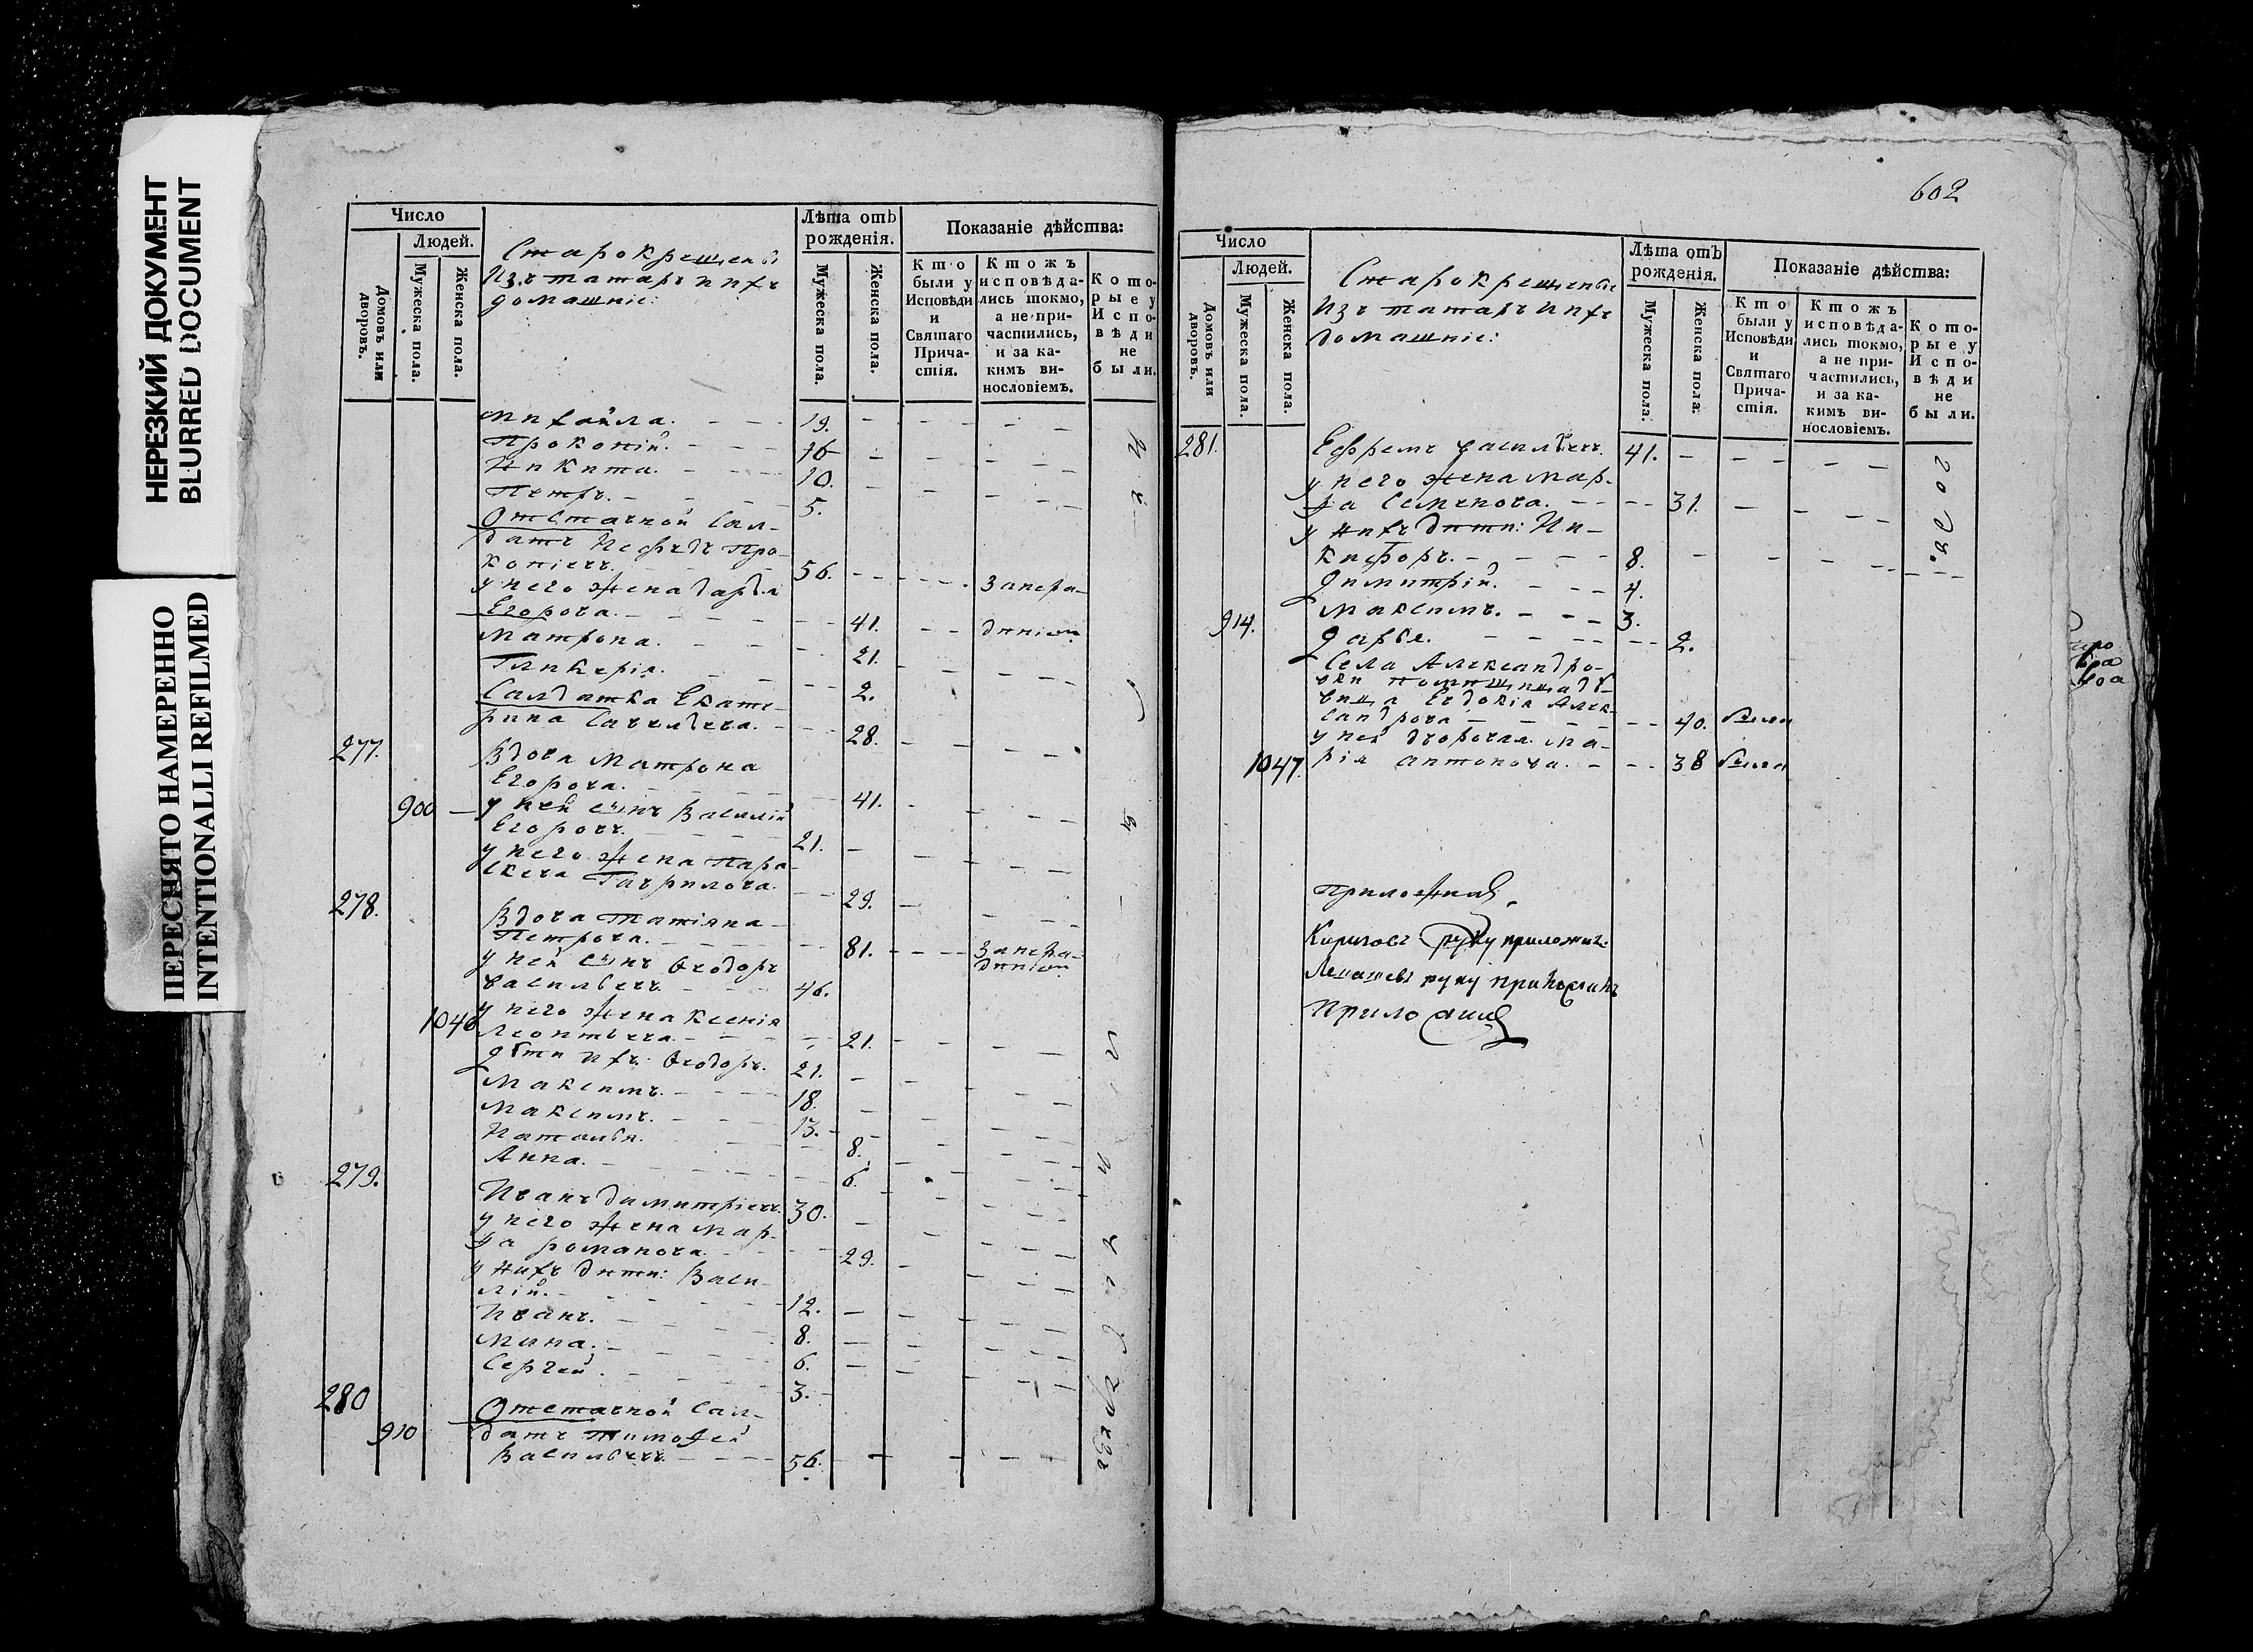 НЕРЕЗКИЙ ДОКУМЕНТ
BLURRED DOCUMENT
ПЕРЕСНЯТО НАМЕРЕННО
INTENTIONALLI REFILMED
Число
Людей.
Домовъ или дворовъ.
Мужеска пола.
Женска пола.
Старокрещены
Изъ татаръ ихъ
домашніе:
Лѣта отъ рожденія.
Мужеска пола.
Женска пола.
Показаніе дѣйства:
Кто были у Исповѣди и Святаго Причастія.
Ктожъ исповѣдались токмо, а не причастились, и за какимъ винословіемъ.
Которые у Исповѣди не были.
Михайла. 19.
Прокопій. 16
Никита. 10.
Петръ. 5.
Отставной сал-
датъ Нефедъ Про-
копіевъ. 56.
у него жена дарья
Егорова. 41.
Матрона. 21.
Гликерія. 2.
Салдатка Екате-
рина Савельева. 28.
277. Вдова Матрона
Егорова. 41.
900 у ней сынъ Василій
Егоровъ. 21.
у него жена Пара-
скева Гаврилова. 29.
278. Вдова татіяна
Петрова. 81.
у ней сынъ Ѳеодоръ
васильевъ. 46.
1046 у него жена Ксенія
Леонтьева. 21.
дѣти ихъ: Ѳеодоръ. 21.
Максимъ. 18.
Максимъ. 13.
Наталья. 8.
Анна. 6.
279. Иванъ димитріевъ. 30.
у него жена Мар-
ѳа романова. 29.
у нихъ дети: Васи-
лій. 12.
Иванъ. 8.
Мина. 6.
Сергей. 3.
280 Отставной сал-
910 датъ тимоѳей
Васильевъ. 56.
602
Число
Людей.
Домовъ или дворовъ.
Мужеска пола.
Женска пола.
Старокрещены
Изъ татаръ ихъ
домашніе:
Лѣта отъ рожденія.
Мужеска пола.
Женска пола.
Показаніе дѣйства:
Кто были у Исповѣди и Святаго Причастія.
Ктожъ исповѣдались токмо, а не причастились, и за какимъ винословіемъ.
Которые у Исповѣди не были.
281. Ефремъ васильевъ. 41.
у него жена Мар-
ѳа Семенова. 31.
у нихъ дети: Ни-
кифоръ. 8.
Димитрій. 4.
Максимъ. 3.
914. Дарья. 2.
села Александро-
Евдокія Алек-
сандрова 40. была
у ней дворовая Ма-
1047. рія антонова. 38 была
руку приложилъ
руку